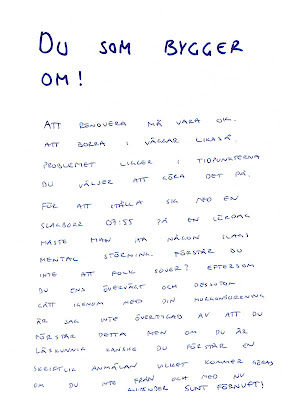 DU SOM BYGGER
OM!
ATT RENOVERA MÅ VARA OK.
ATT BORRA I VÄGGAR LIKASÅ.
PROBLEMET LIGGER I TIDPUNKTERNA
DU VÄLJER ATT GÖRA DET PÅ.
FÖR ATT STÄLLA SIG MED EN
SLAGBORR 07:55 PÅ EN LÖRDAG
MÅSTE MAN HA NÅGON SLAGS
MENTAL STÖRNING. FÖRSTÅR DU
INTE ATT FOLK SOVER? EFTERSOM
DU ENS ÖVERVÄGT OCH DESSUTOM
GÅTT IGENOM MED DIN MORGONBORRNING
ÄR JAG INTE ÖVERTYGAD AV ATT DU
FÖRSTÅR DETTA MEN OM DU ÄR
LÄSKUNNIG KANSKE DU FÖRSTÅR EN
SKRIFTLIG ANMÄLAN VILKET KOMMER GÖRAS
OM DU INTE FRÅN OCH MED NU
ANVÄNDER SUNT FÖRNUFT!